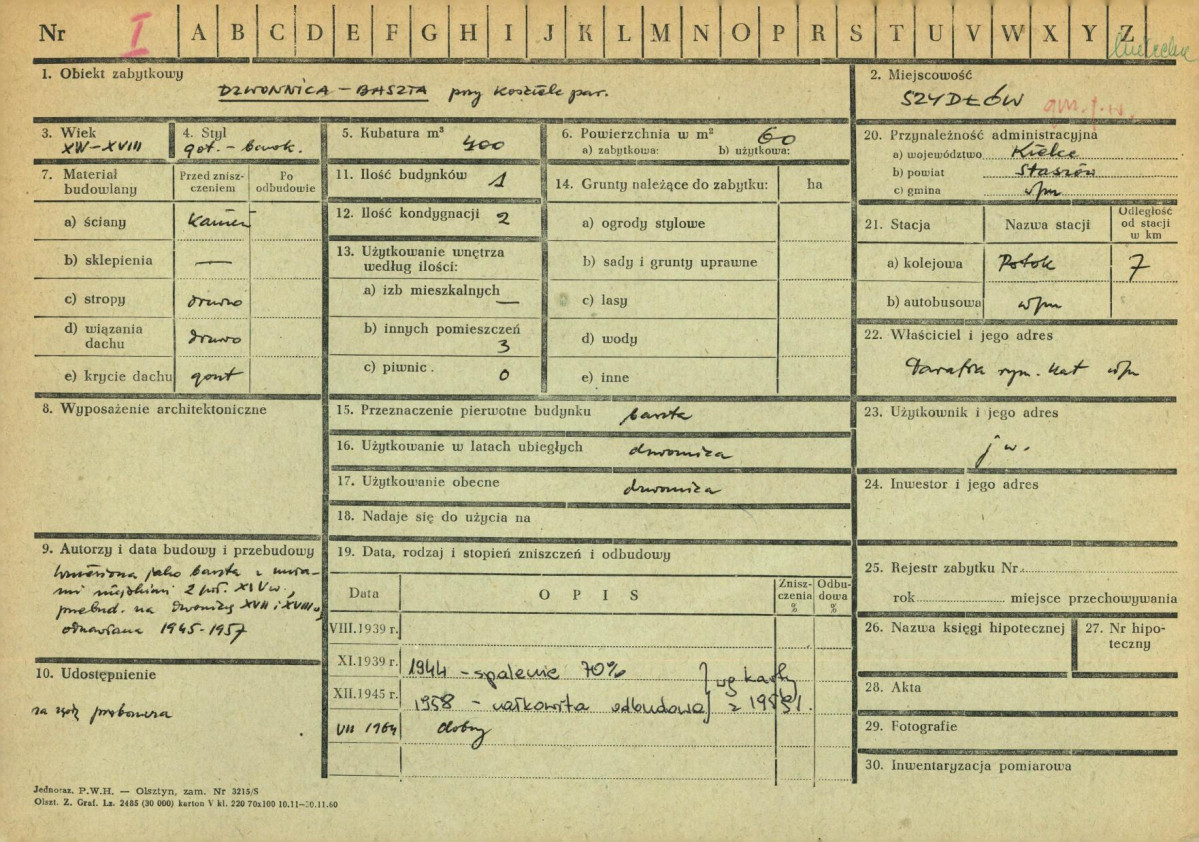 Nr I A B C D E F G H I J K L M N O P R S T U V W X Y Z
1. Obiekt zabytkowy
DZWONNICA – BASZTA przy Kościele par.
2. Miejscowość
SZYDŁÓW gm. j. w.
3. Wiek
XIV–XVIII
4. Styl
got. – barok.
5. Kubatura m³ 400
6. Powierzchnia w m² 60
a) zabytkowa: b) użytkowa:
7. Materiał budowlany
Przed znisz-
czeniem
Po
odbudowie
a) ściany kamień
b) sklepienia —
c) stropy drewno
d) wiązania
dachu drewno
e) krycie dachu gont
8. Wyposażenie architektoniczne
9. Autorzy i data budowy i przebudowy
Wzniesiona jako baszta z mura-
mi miejskimi 2 poł. XIV w,
przebud. na dzwonnicę XVII i XVIII w,
odnawiana 1945-1957
10. Udostępnienie
za zgodą proboszcza
11. Ilość budynków 1
12. Ilość kondygnacji 2
13. Użytkowanie wnętrza
według ilości:
a) izb mieszkalnych —
b) innych pomieszczeń
3
c) piwnic. 0
14. Grunty należące do zabytku: ha
a) ogrody stylowe
b) sady i grunty uprawne
c) lasy
d) wody
e) inne
15. Przeznaczenie pierwotne budynku baszta
16. Użytkowanie w latach ubiegłych dzwonnica
17. Użytkowanie obecne dzwonnica
18. Nadaje się do użycia na
19. Data, rodzaj i stopień zniszczeń i odbudowy
Data O P I S
Znisz-
czenia
%
Odbu-
dowa
%
VIII.1939 r.
XI.1939 r. 1944 – spalenie 70%
XII.1945 r. 1958 – całkowita odbudowa
wg karty
z 1959 r.
VII 1964 dobry
20. Przynależność administracyjna
a) województwo Kielce
b) powiat Staszów
c) gmina w/m
21. Stacja Nazwa stacji
Odległość
od stacji
w km
a) kolejowa Potok 7
b) autobusowa w/m
22. Właściciel i jego adres
Parafia rzym. kat w/m
23. Użytkownik i jego adres
j w.
24. Inwestor i jego adres
25. Rejestr zabytku Nr
rok miejsce przechowywania
26. Nazwa księgi hipotecznej
27. Nr hipo-
teczny
28. Akta
29. Fotografie
30. Inwentaryzacja pomiarowa
Jednoraz. P.W.H. — Olsztyn, zam. Nr 3215/S
Olszt. Z. Graf. Lz. 2485 (30 000) karton V kl. 220 70x100 10.11—30.11.60